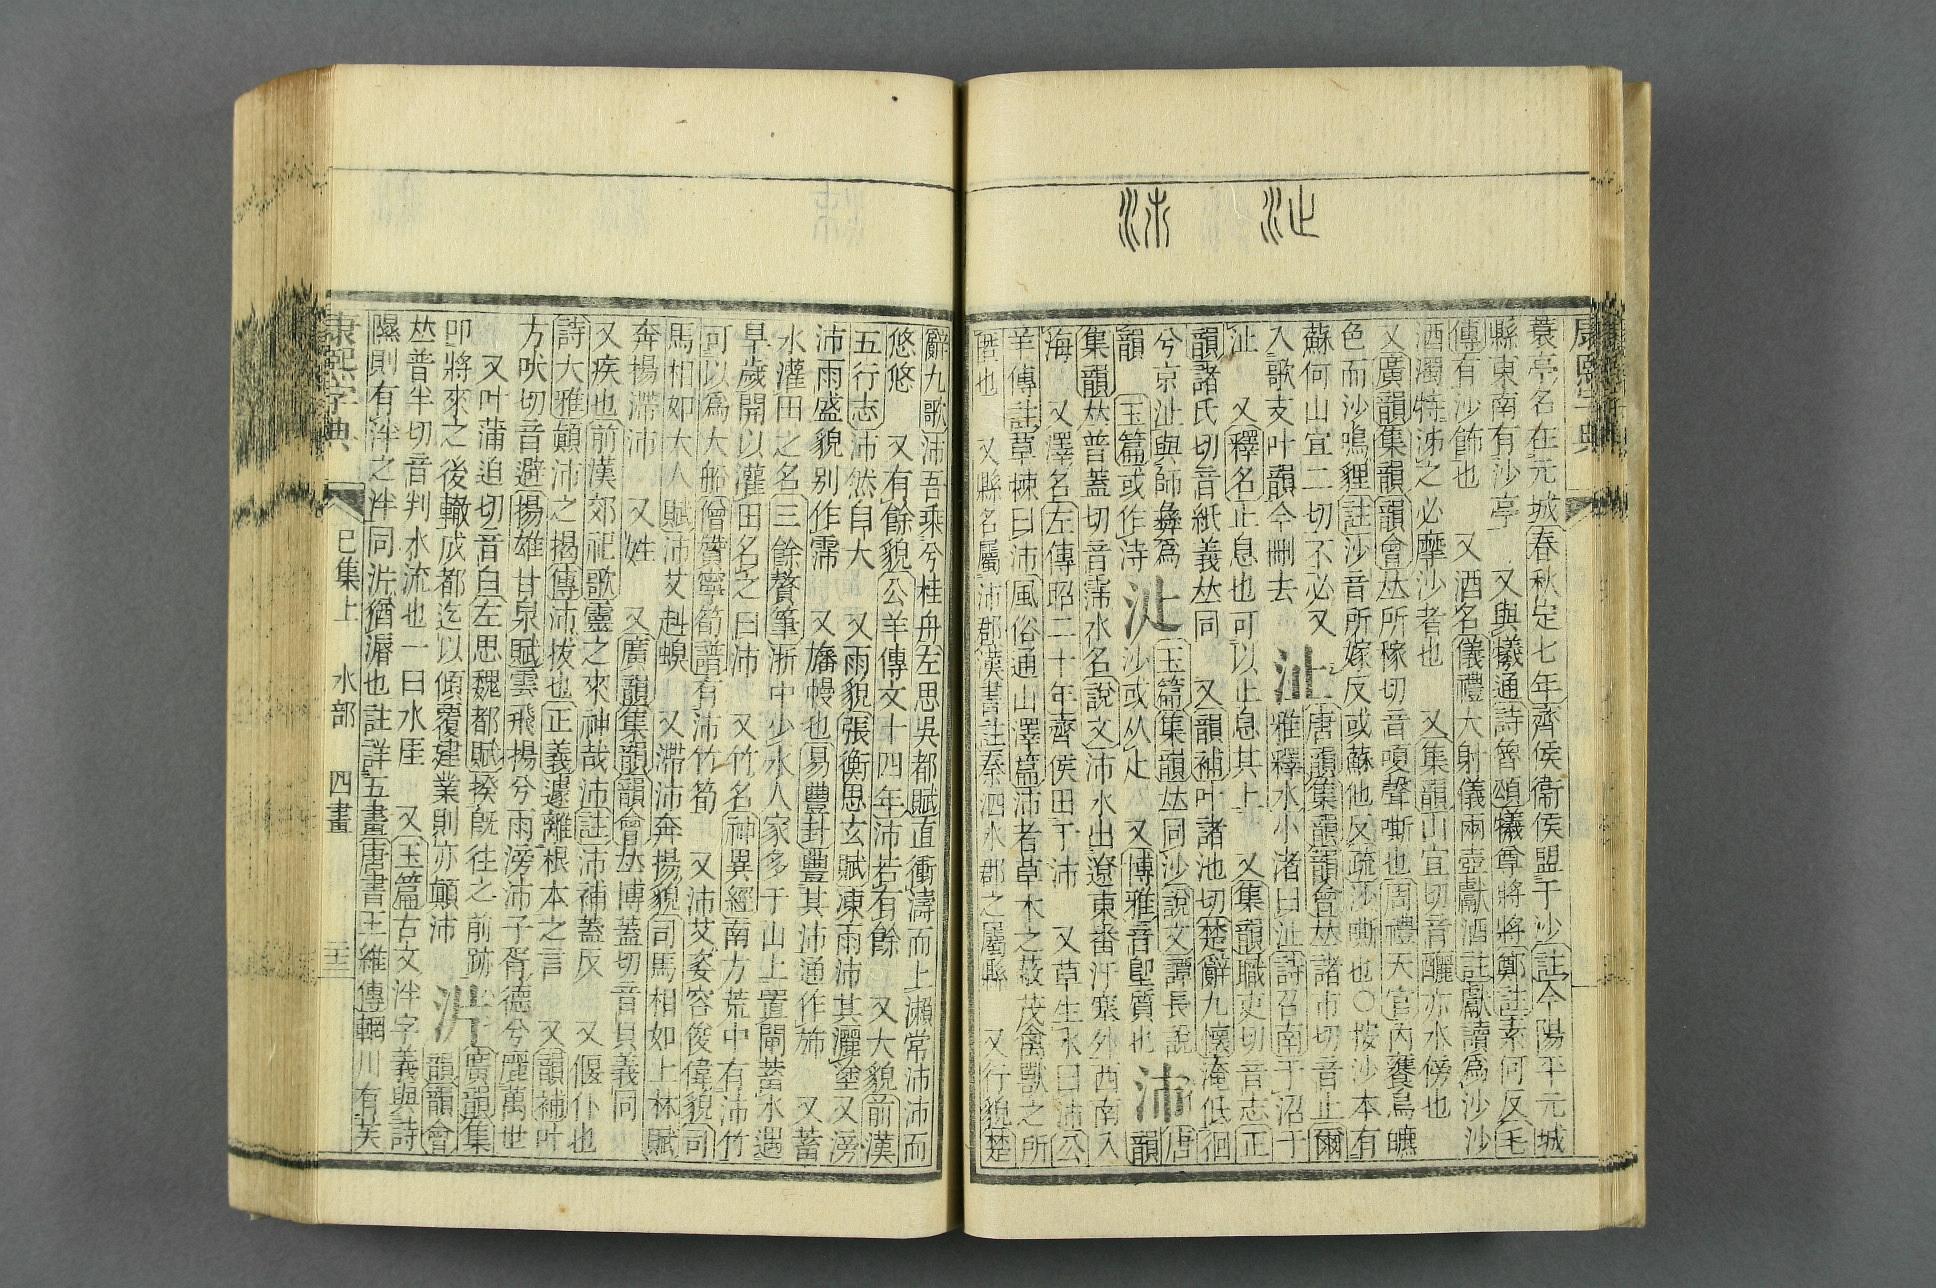 沚
沛
康熙字典
裏亭名在元城春秋定七年齊侯衞侯盟于沙註今陽平元城
縣東南有沙亭 又與犧通詩魯頌犧尊將將鄭註素何反毛
傳有沙飾也 又酒名儀禮大射儀兩壺獻酒註獻讀爲沙沙
酒濁特泲之必摩沙者也 又集韻山宜切音釃亦水傍也
又廣韻集韻韻會𠀤所稼切音嗄聲嘶也周禮天官内饔鳥皫
色而沙鳴貍註沙音所嫁反或蘇他反疏沙嘶也〇按沙本有
蘇何山宜二切不必又
沚
唐韻集韻韻會𠀤諸市切音止爾
入歌支叶韻今删去
雅釋水小渚曰沚詩召南于沼于
沚 又釋名止息也可以止息其上 又集韻職吏切音志正
韻諸氏切音紙義𠀤同 又韻補叶諸池切楚辭九懷淹低徊
兮京沚與師彝爲
沙
玉篇集韻𠀤同沙說文譚長說唐
韻 玉篇或作沶
沙或从尐 又博雅音卽質也
沛
韻
集韻𠀤普蓋切音霈水名說文沛水出遼東番汗塞外西南入
海 又澤名左傳昭二十年齊侯田于沛 又草生水曰沛公
羊傳註草棘曰沛風俗通山澤篇沛者草木之蔽茂禽獸之所
匿也 又縣名屬沛郡漢書註秦泗水郡之屬縣 又行貌楚
辭九歌沛吾乘兮桂舟左思吳都賦直衝濤而上瀨常沛沛而
悠悠 又有餘貌公羊傳文十四年沛若有餘 又大貌前漢
五行志沛然自大 又雨貌張衡思玄賦凍雨沛其灑塗又滂
沛雨盛貌别作霈 又旛幔也易豐卦豐其沛通作旆 又蓄
水灌田之名三餘贅筆浙中少水人家多于山上置閘蓄水遇
旱歲開以灌田名之曰沛 又竹名神異經南方荒中有沛竹
可以爲大船僧贊寧筍譜有沛竹筍 又沛艾姿容俊偉貌司
馬相如大人賦沛艾赳螑 又滯沛奔揚貌司馬相如上林賦
奔揚滯沛 又姓 又廣韻集韻韻會𠀤博蓋切音貝義同
又疾也前漢郊祀歌靈之來神哉沛註沛補蓋反 又偃仆也
詩大雅顚沛之揭傳沛拔也正義遽離根本之言 又韻補叶
方吠切音避揚雄甘泉賦雲飛揚兮雨滂沛于胥德兮麗萬世
又叶蒲追切音白左思魏都賦揆旣往之前跡
卽將來之後轍成都迄以傾覆建業則亦顚沛
泮
廣韻集
韻韻會
𠀤普半切音判水流也一曰水厓 又玉篇古文泮字義與詩
隰則有泮之泮同泮猶涯也註詳五畫唐書王維傳輞川有芙
康熙字典
巳集上 水部 四畫
二十二